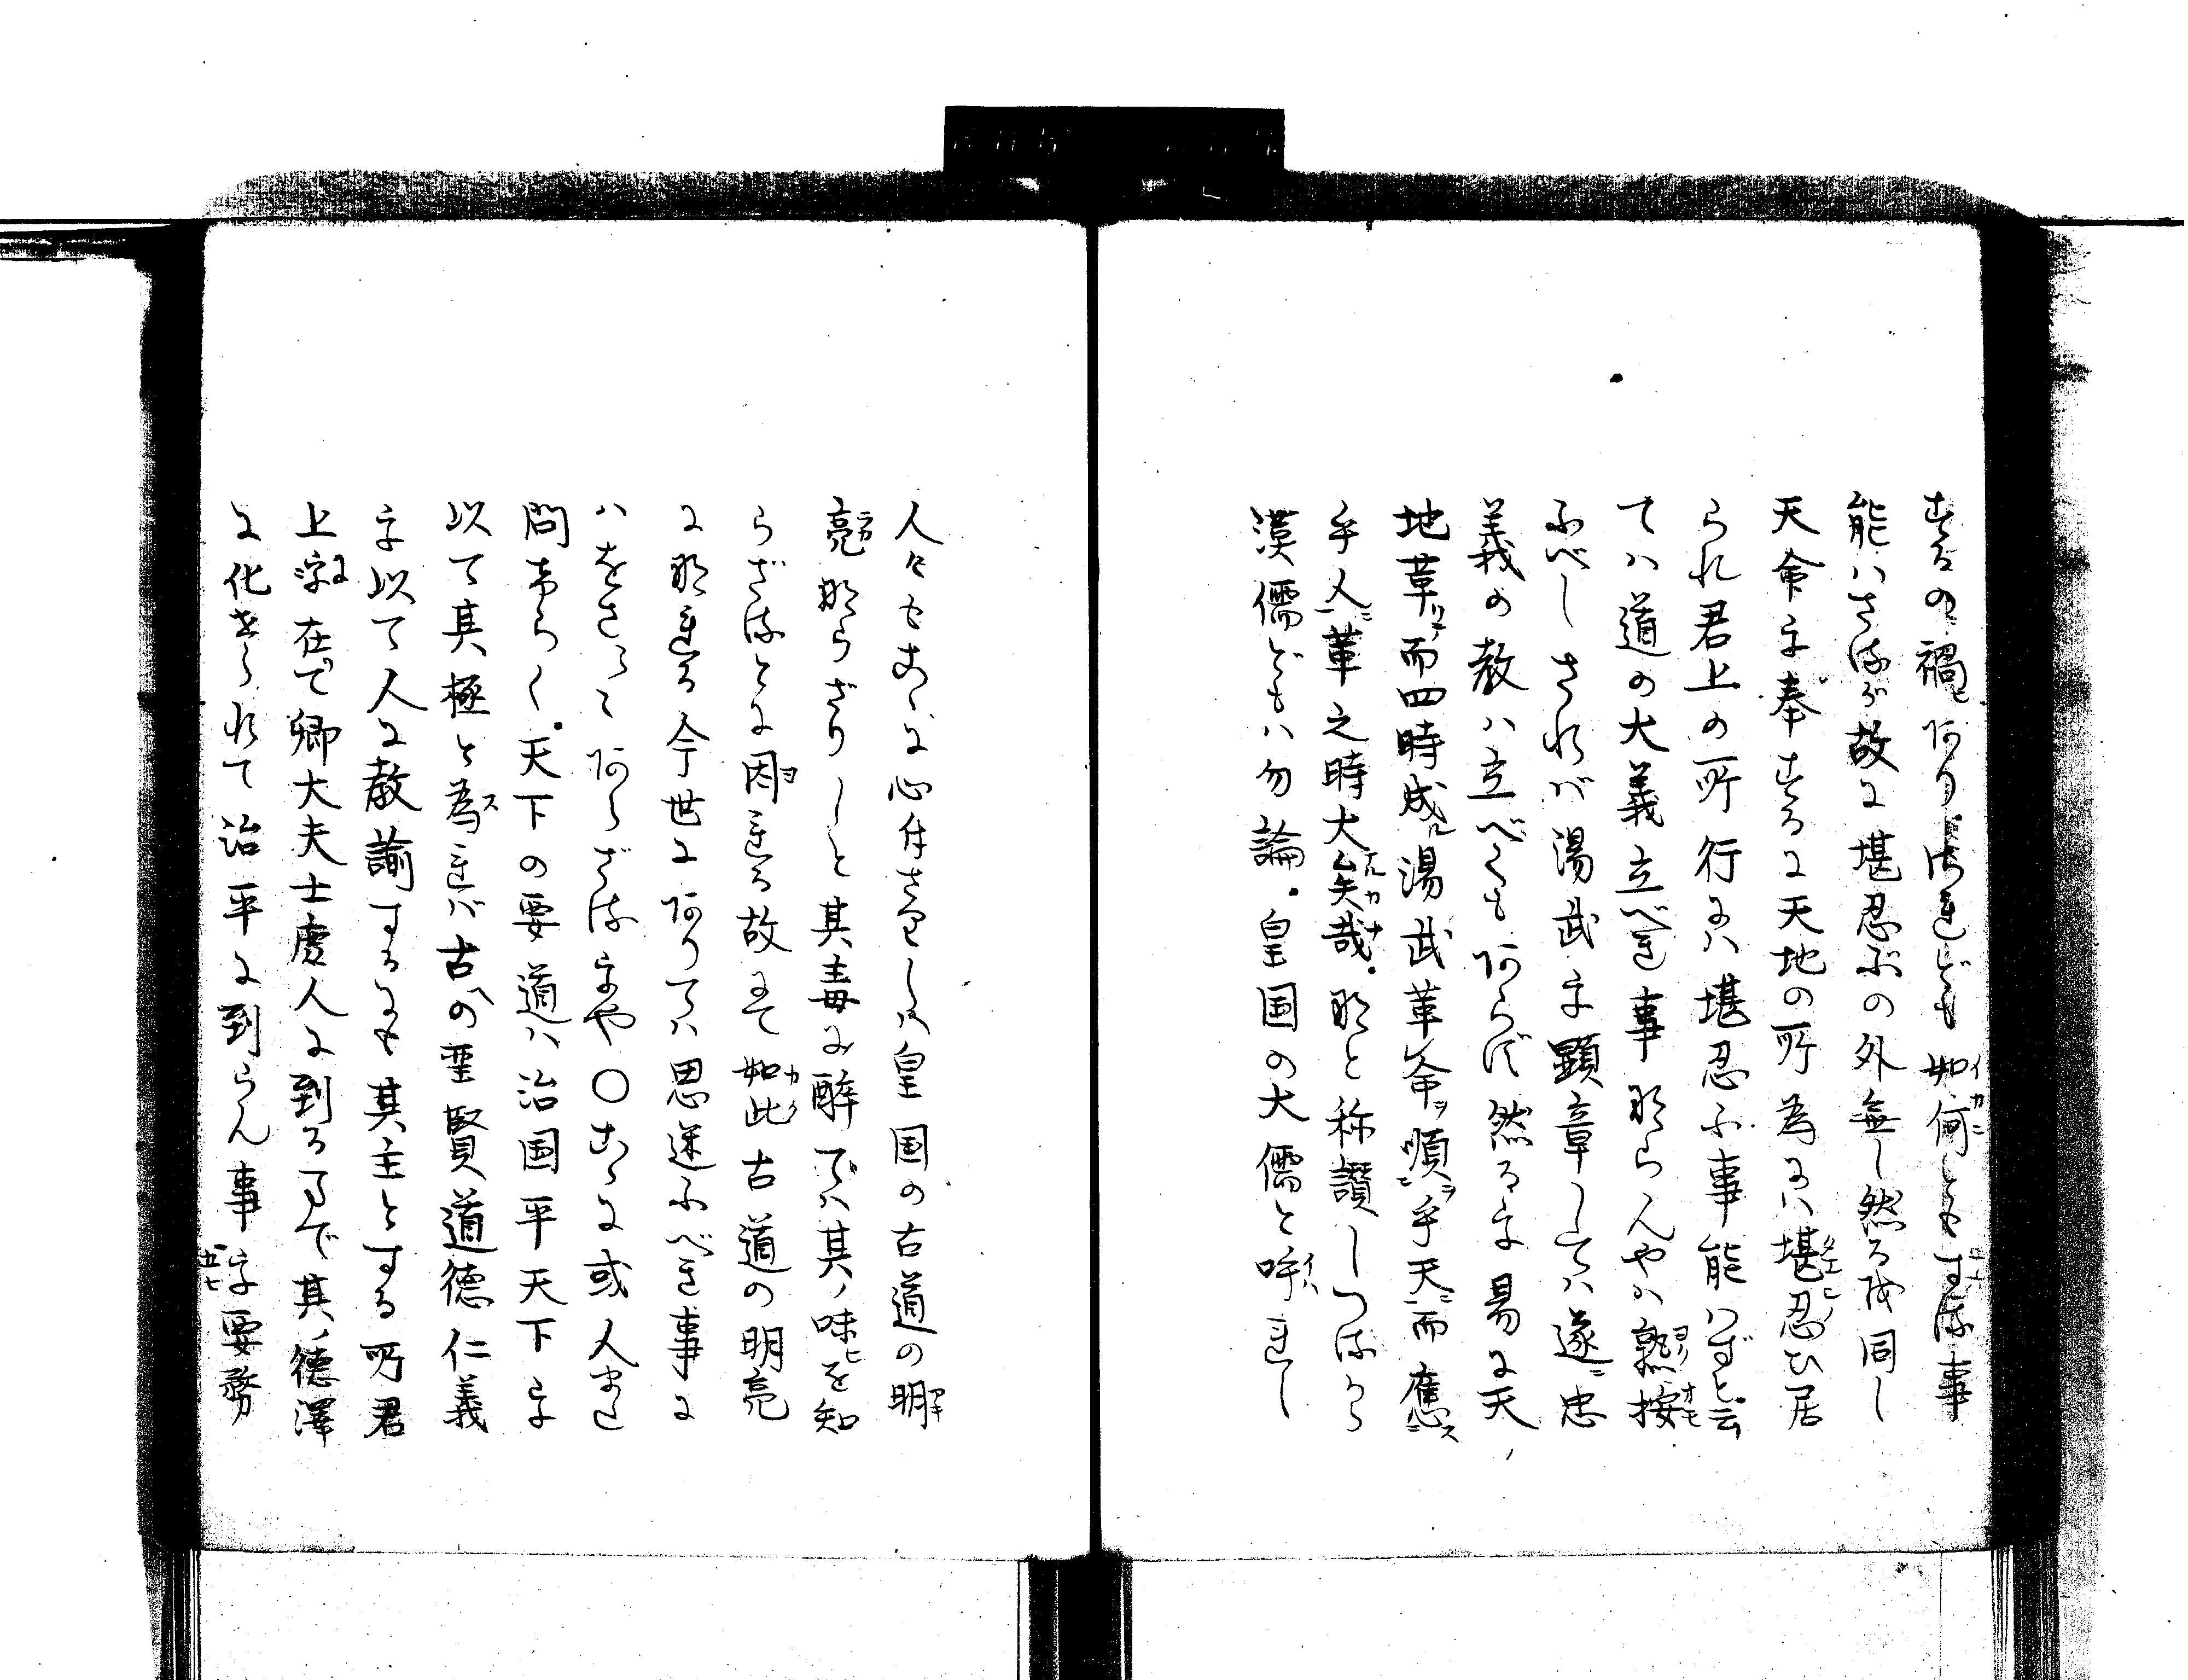 するの禍ヒ阿りけれども如何ともする事
能ハざるが故に堪忍ぶの外無し然る故同し
天命を奉するに天地の所為にハ堪忍ひ居
られ君上の所行にハ堪忍ふ事能ハずと云
てハ道の大義立べき事那らんやハ熟按
ふべしされバ湯武を顕章してハ遂ニ忠
義の教ハ立べくも阿らず然るを易に天
地革リテ而四時成ル湯武革命ヲ順ヲ乎天ニ而應ス
乎人ニ革之時大矣哉那と称讃しつるから
漢儒どもハ勿論皇国の大儒と呼れし
人々もあゝに心付ざりしハ皇国の古道の明
亮那らざりしと其毒に醉てハ其ノ味ヒを知
らざるとに因れる故にて如此古道の明亮
に那れる今世に阿りてハ思迷ふべき事に
ハをさ〳〵阿らざるをや〇あゝに或人来て
問けらく天下の要道ハ治国平天下を
以て其極と為れバ古への聖賢道徳仁義
を以て人に教諭するにも其主とする所君
上に在て卿大夫士庶人に到るまで其ノ德澤
に化せられて治平に到らん事を要務